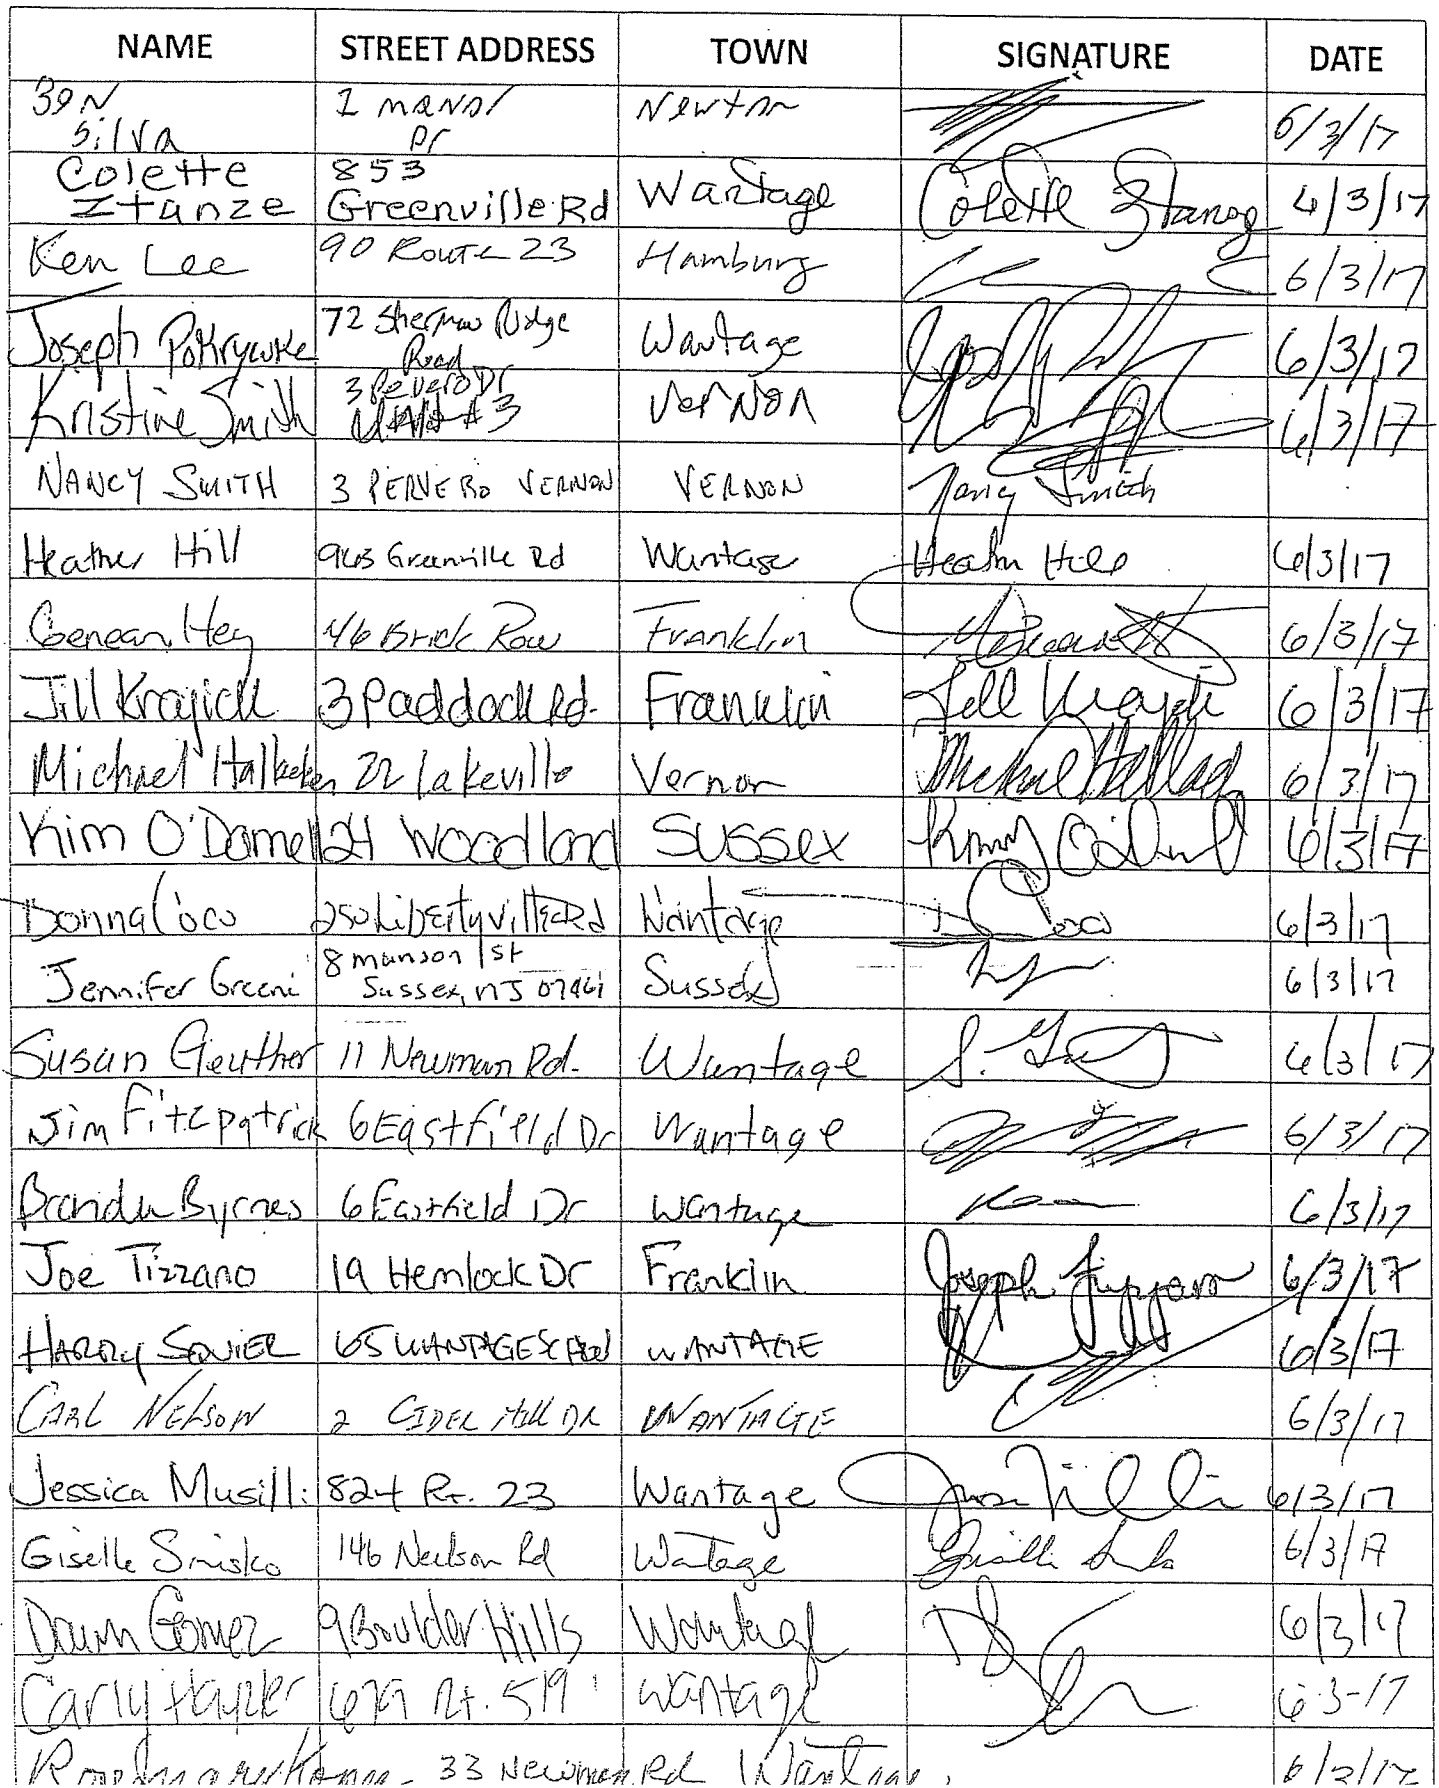 NAME STREET ADDRESS TOWN SIGNATURE DATE
Silva 1 Manor Dr Newton 6/3/17
Colette Ztanze 853 Greenville Rd Wantage Colette Ztanze 6/3/17
Ken Lee 90 Route 23 Hamburg 6/3/17
Joseph Pokrywke 72 Sherman Ridge Road Wantage 6/3/17
Kristine Smith 3 Pevero Dr Unit #3 Vernon 6/3/17
NANCY SMITH 3 PERVERO VERNON VERNON Nancy Smith
Heather Hill 963 Greenville Rd Wantage Heather Hill 6/3/17
Genean Hey 46 Brick Row Franklin 6/3/17
Jill Krajick 3 Paddock Rd. Franklin Jill Krajick 6/3/17
Michael 22 Lakeville Vernon Michael 6/3/17
Kim O'Donnell 24 Woodland SUSSEX 6/3/17
Donna Coco 250 Libertyville Rd Wantage Coco 6/3/17
Jennifer 8 munson st Sussex, NJ 07461 Sussex 6/3/17
Susan Geuther 11 Newman Rd. Wantage 6/3/17
Jim Fitzpatrick 6 Eastfield Dr Wantage 6/3/17
Byrnes 6 Eastfield Dr Wantage 6/3/17
Joe Tizzano 19 Hemlock Dr Franklin Joseph Tizzano 6/3/17
HARRY SQUIER 65 WANTAGE WANTAGE 6/3/17
CARL NELSON 2 CIDER Hill DR WANTAGE 6/3/17
Jessica Musilli 824 Rt. 23 Wantage 6/3/17
Giselle Smisko 146 Neilson Rd Wantage Giselle 6/3/17
Dawn Gomez 9 Boulder Hills Wantage 6/3/17
Carly 679 Rt. 519 Wantage 6-3-17
33 Newman Rd Wantage 6/3/17